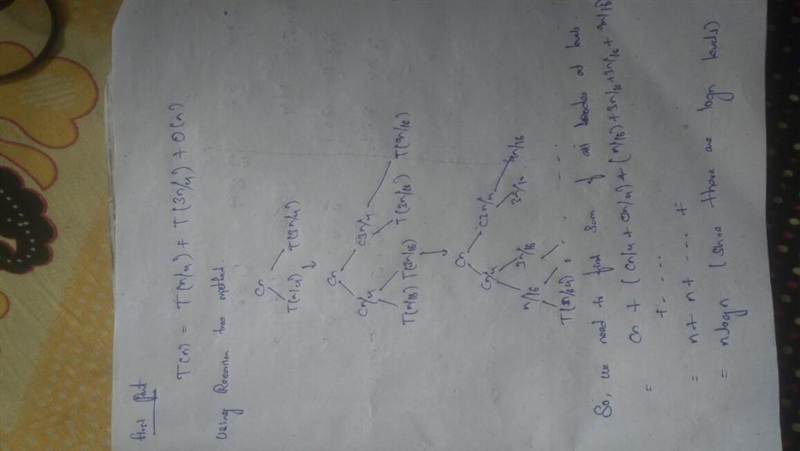 First Part
T(n) = T(n/4) + T(3n/4) + O(n)
Using Recursion tree method.
Cn
T(n/4) T(3n/4)
Cn
Cn/4 C3n/4
T(n/16) T(3n/16) T(3n/16) T(9n/16)
Cn
Cn/4 C3n/4
n/16 3n/16 3n/16 9n/16
T(n/64)
So, we need to find sum of all branches at levels.
= Cn + (Cn/4 + Cn/4) + (n/16) + 3n/16 + 3n/16 + 9n/16
+ - - - -
= n + n + - - - +
= nlogn (since there are logn levels)